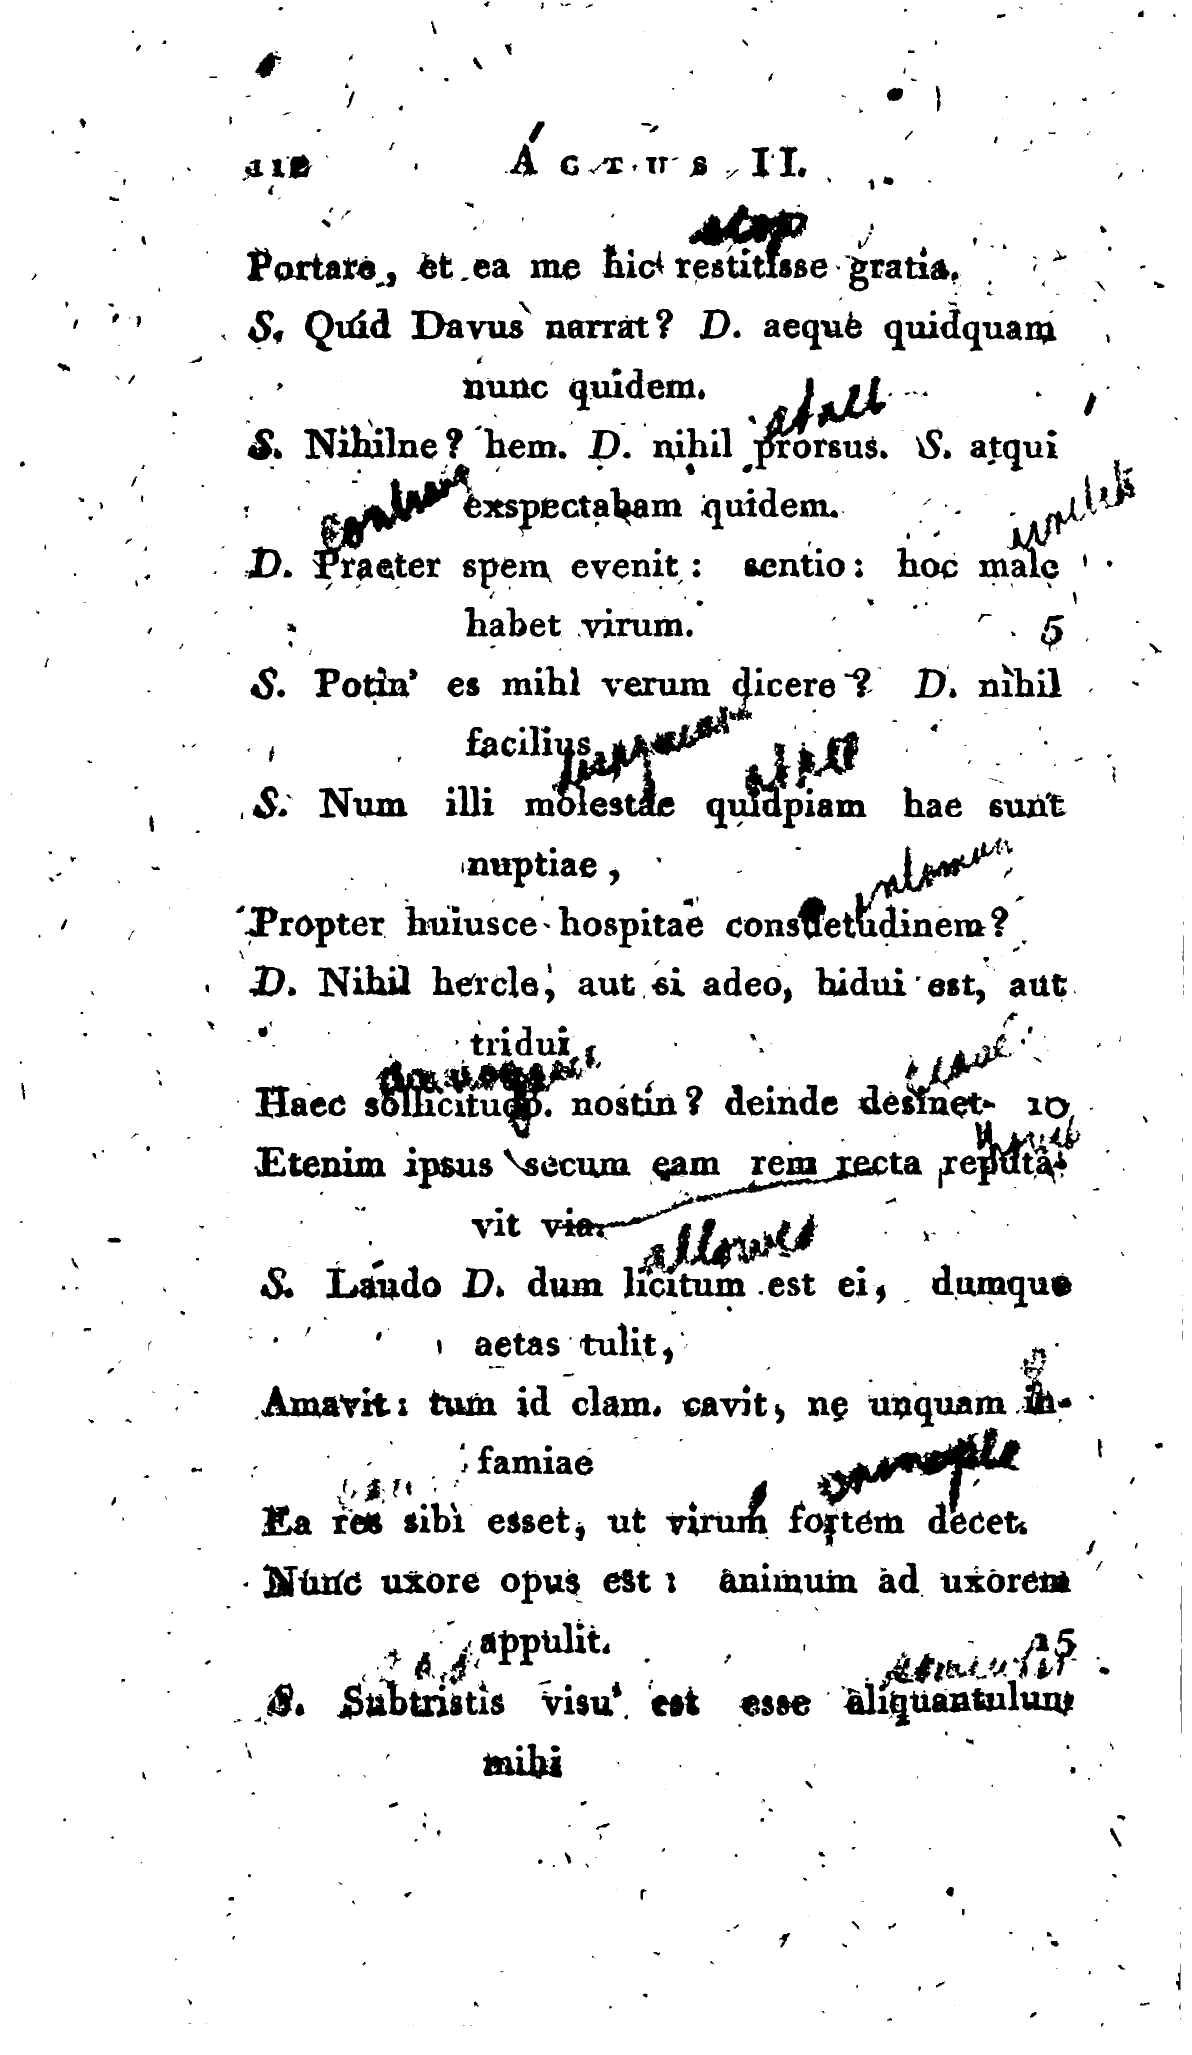 112 ACTUS II.
stop
Portare, et ea me hic restitisse gratia.
S. Quid Davus narrat? D. aeque quidquam
nunc quidem.
at all
S. Nihilne? hem. D. nihil prorsus. S. atqui
exspectabam quidem.
contrary
D. Praeter spem evenit: sentio: hoc male
habet virum. 5
S. Potin' es mihi verum dicere? D. nihil
facilius.
at all
S. Num illi molestae quidpiam hae sunt
nuptiae,
Propter huiusce hospitae consuetudinem?
D. Nihil hercle, aut si adeo, bidui est, aut
tridui
Haec sollicitudo. nostin? deinde desinet. 10
Etenim ipsus secum eam rem recta reputa-
vit via.
allowed
S. Laudo D. dum licitum est ei, dumque
aetas tulit,
Amavit: tum id clam. cavit, ne unquam in-
famiae
Ea res sibi esset, ut virum fortem decet.
Nunc uxore opus est: animum ad uxorem
appulit. 15
sad
S. Subtristis visu' est esse aliquantulum
mihi